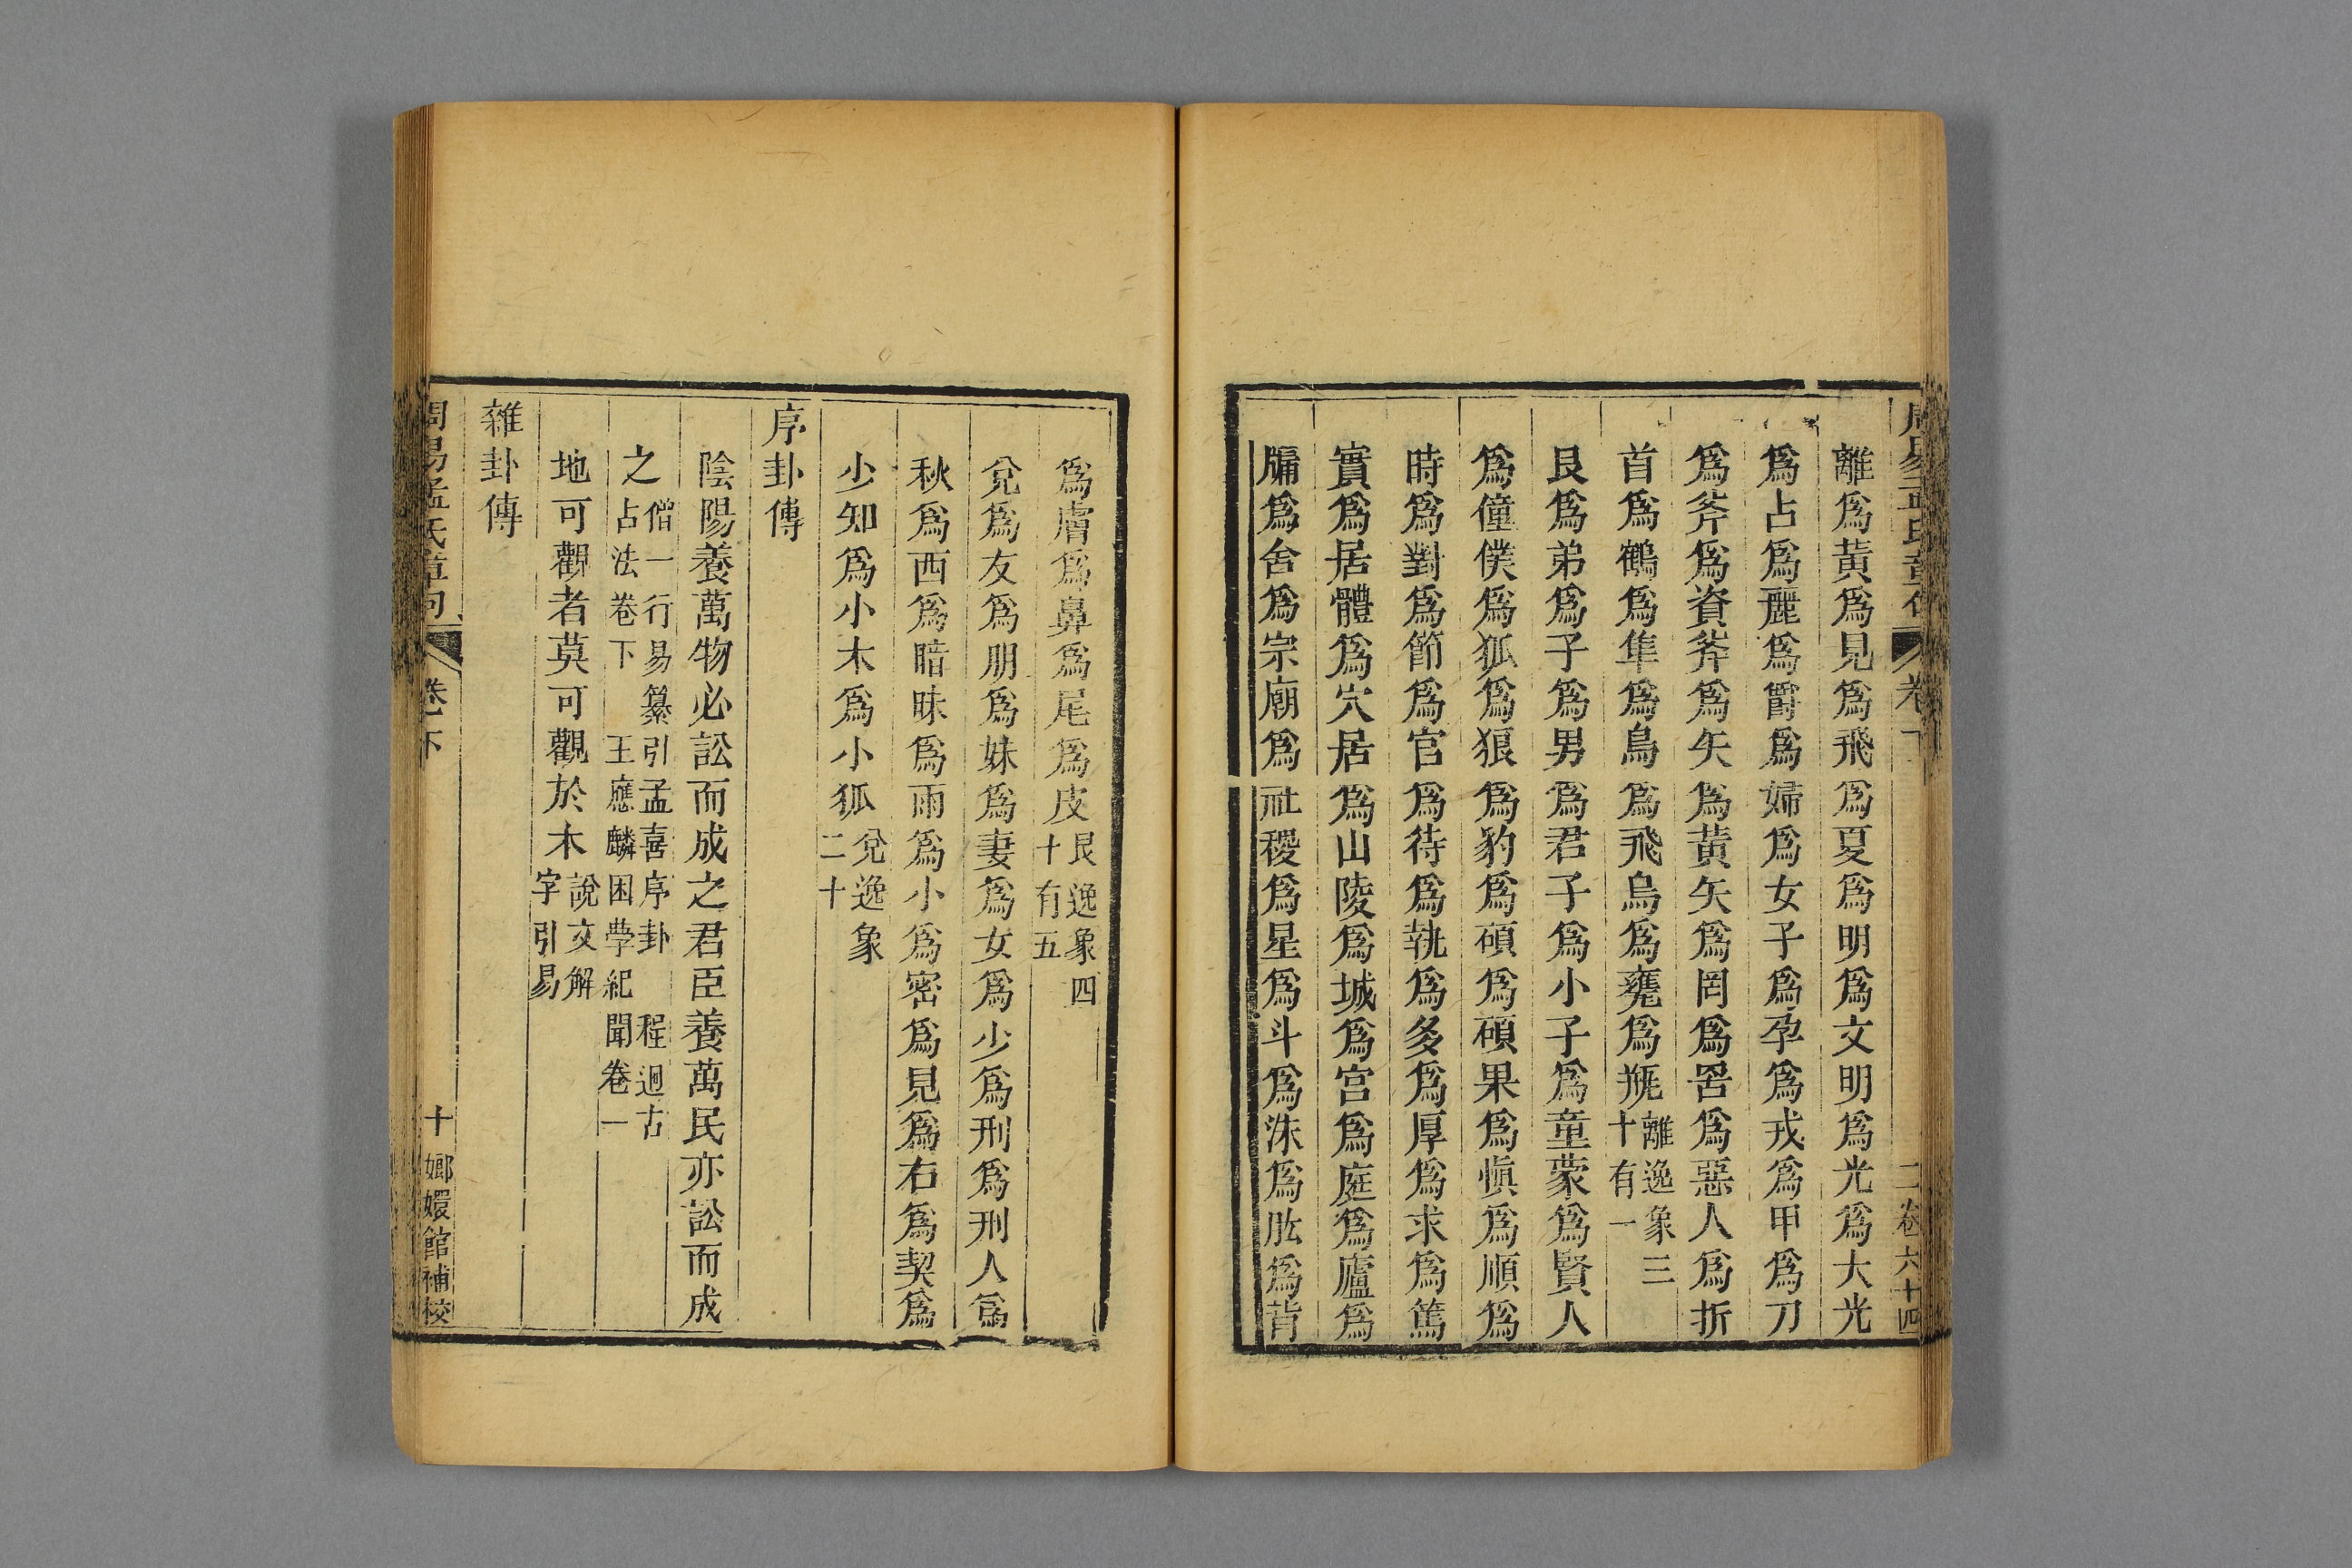 周易孟氏章句 卷下 二卷六十四
離爲黃爲見爲飛爲夏爲明爲文明爲光爲大光
爲占爲麗爲爵爲婦爲女子爲孕爲戎爲甲爲刀
爲斧爲資斧爲矢爲黃矢爲罔爲罟爲惡人爲折
首爲鶴爲隼爲鳥爲飛烏爲甕爲瓶離逸象三十有一
艮爲弟爲子爲男爲君子爲小子爲童蒙爲賢人
爲僮僕爲狐爲狼爲豹爲碩爲碩果爲慎爲順爲
時爲對爲節爲官爲待爲執爲多爲厚爲求爲篤
實爲居體爲穴居爲山陵爲城爲宮爲庭爲廬爲
牖爲舍爲宗廟爲社稷爲星爲斗爲沬爲肱爲背
爲膚爲鼻爲尾爲皮艮逸象四十有五
兌爲友爲朋爲妹爲妻爲女爲少爲刑爲刑人爲
秋爲西爲暗昧爲雨爲小爲密爲見爲右爲契爲
少知爲小木爲小狐兌逸象二十
序卦傳
陰陽養萬物必訟而成之君臣養萬民亦訟而成
之僧一行易纂引孟喜序卦 程迥古占法卷下 王應麟困學紀聞卷一
地可觀者莫可觀於木說文解字引易
雜卦傳
周易孟氏章句 卷下 十 嫏嬛館補校